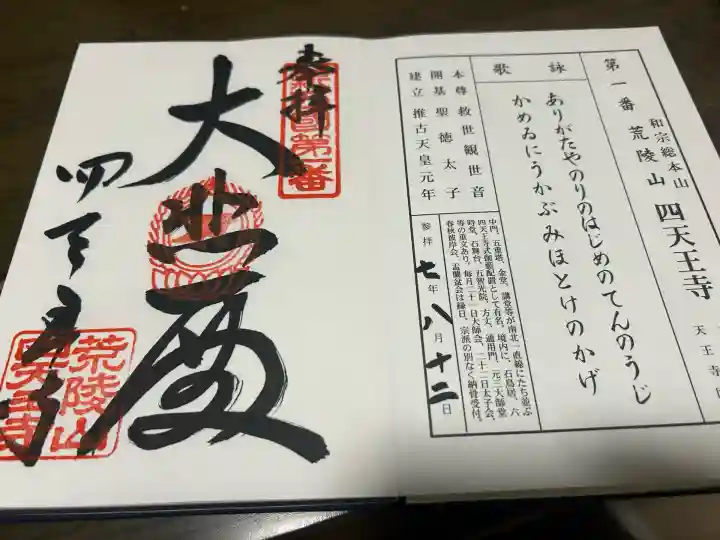 和宗総本山
第一番 荒陵山 四天王寺
天王寺
詠歌
ありがたやのりのはじめのてんのうじ
かめゐにうかぶみほとけのかげ
本尊 救世観世音
開基 聖徳太子
建立 推古天皇元年
中門、五重塔、金堂、講堂等が南北一直線にたち並ぶ
四天王寺式伽藍配置として有名。境内に、石鳥居、六
時堂、石舞台、五智光院、方丈、通用門、元三大師堂
等の重文あり。毎月二十一日大師会、二十二日太子会、
春秋彼岸会、盂蘭盆会は縁日。宗派の別なく納骨受付。
参拝 七年八月十二日
奉拝
新西国第一番
大悲殿
四天王寺
荒陵山
四天王寺